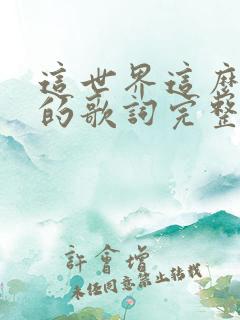 這世界這麼
的歌詞完整
許會增
未經同意禁止轉載